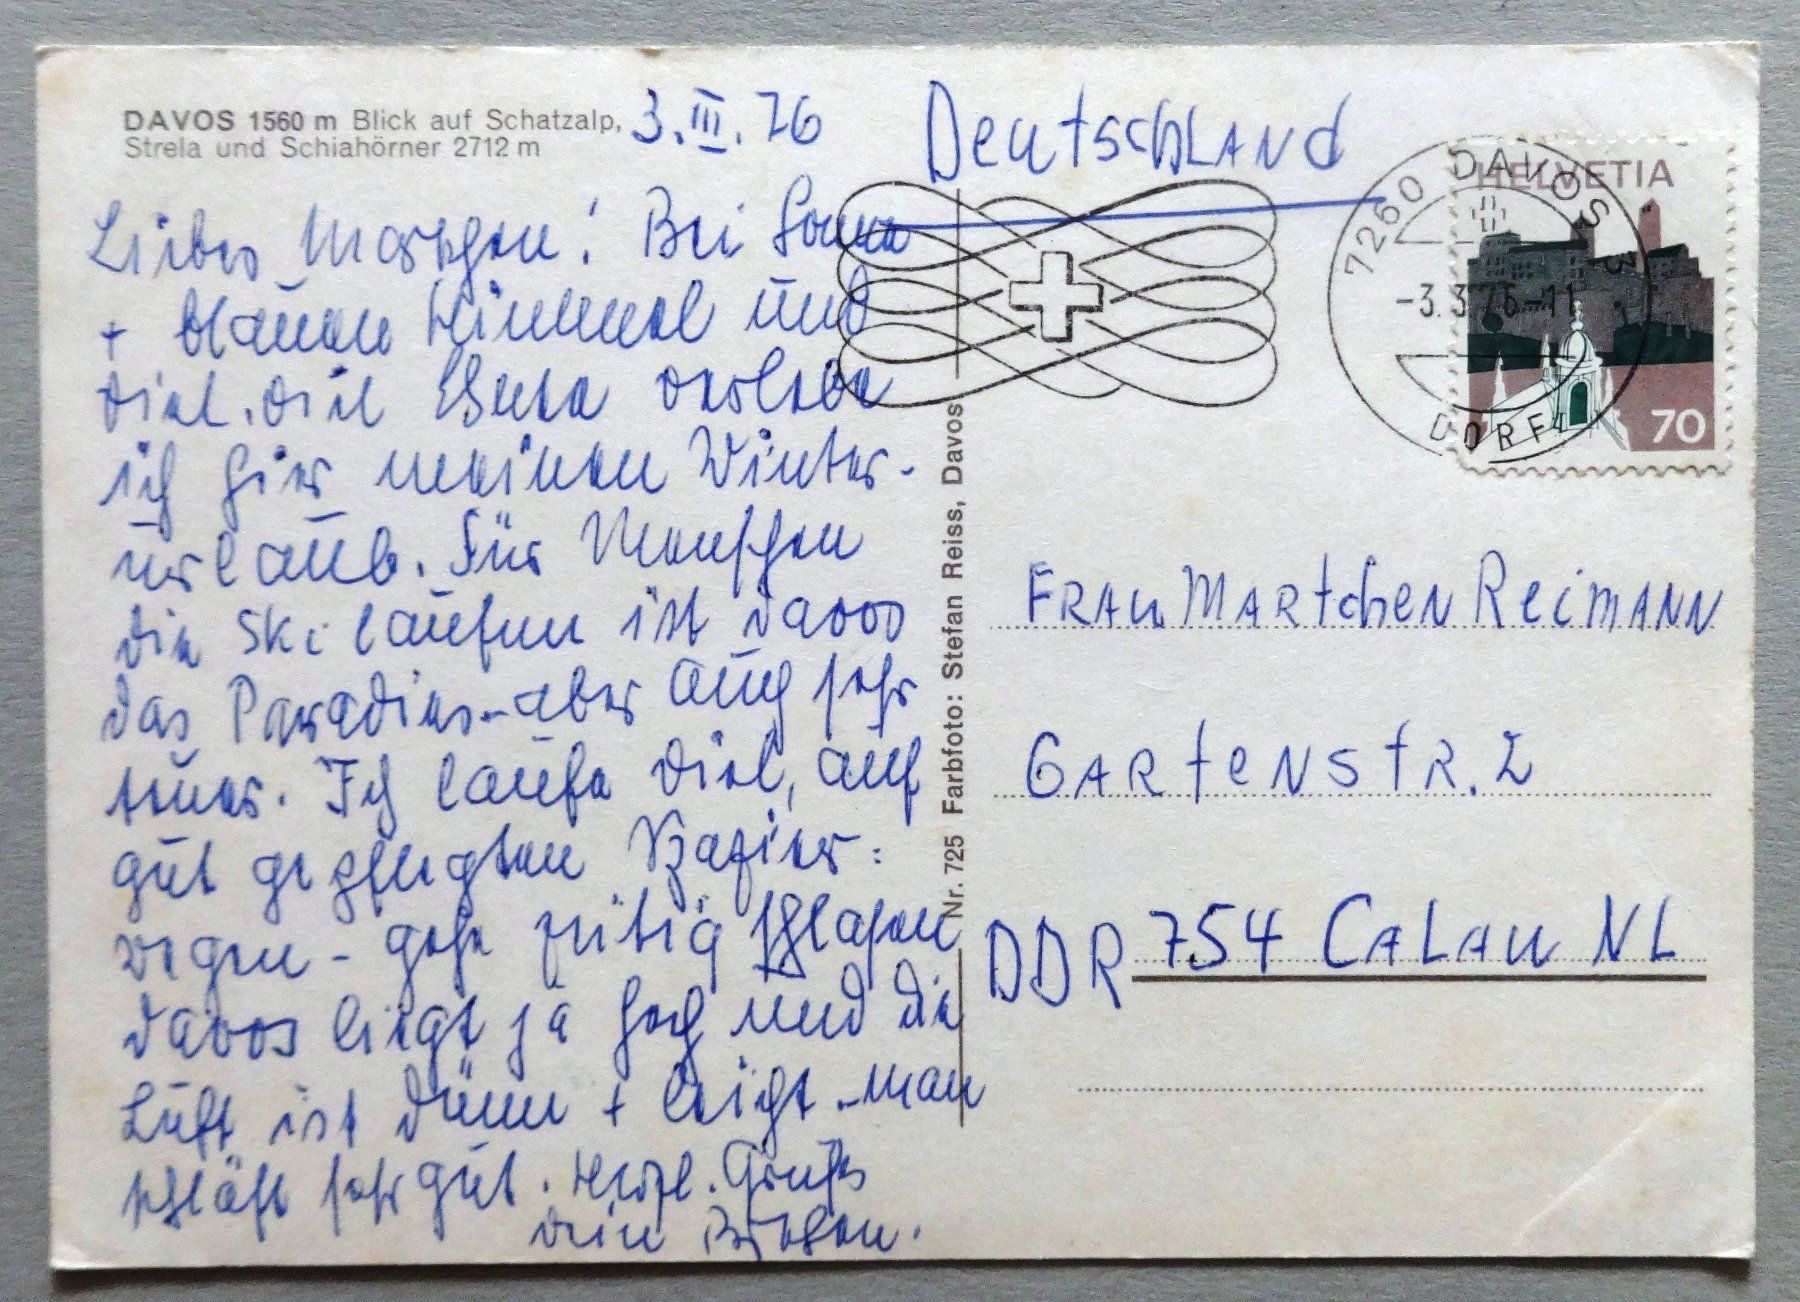 DAVOS 1560 m Blick auf Schatzalp,
Strela und Schiahörner 2712 m
3.III.76
Liebes Martchen! Bei Sonne
+ blauen Himmel und
viel, viel Schnee verlebe
ich hier meinen Winter-
urlaub. Für Menschen
die Ski laufen ist Davos
das Paradies - aber auch sehr
teuer. Ich laufe viel, auf
gut gepflegten Spazier:
wegen - gehe zeitig schlafen
Davos liegt ja hoch und die
Luft ist dünn + leicht - man
schläft sehr gut. Herzl. Grüße
Dein
Deutschland
7260 DAVOS 3
-3.3.76-11
DORF
HELVETIA
70
Nr. 725 Farbfoto: Stefan Reiss, Davos
Frau Martchen Reimann
Gartenstr. 2
DDR 754 Calau NL